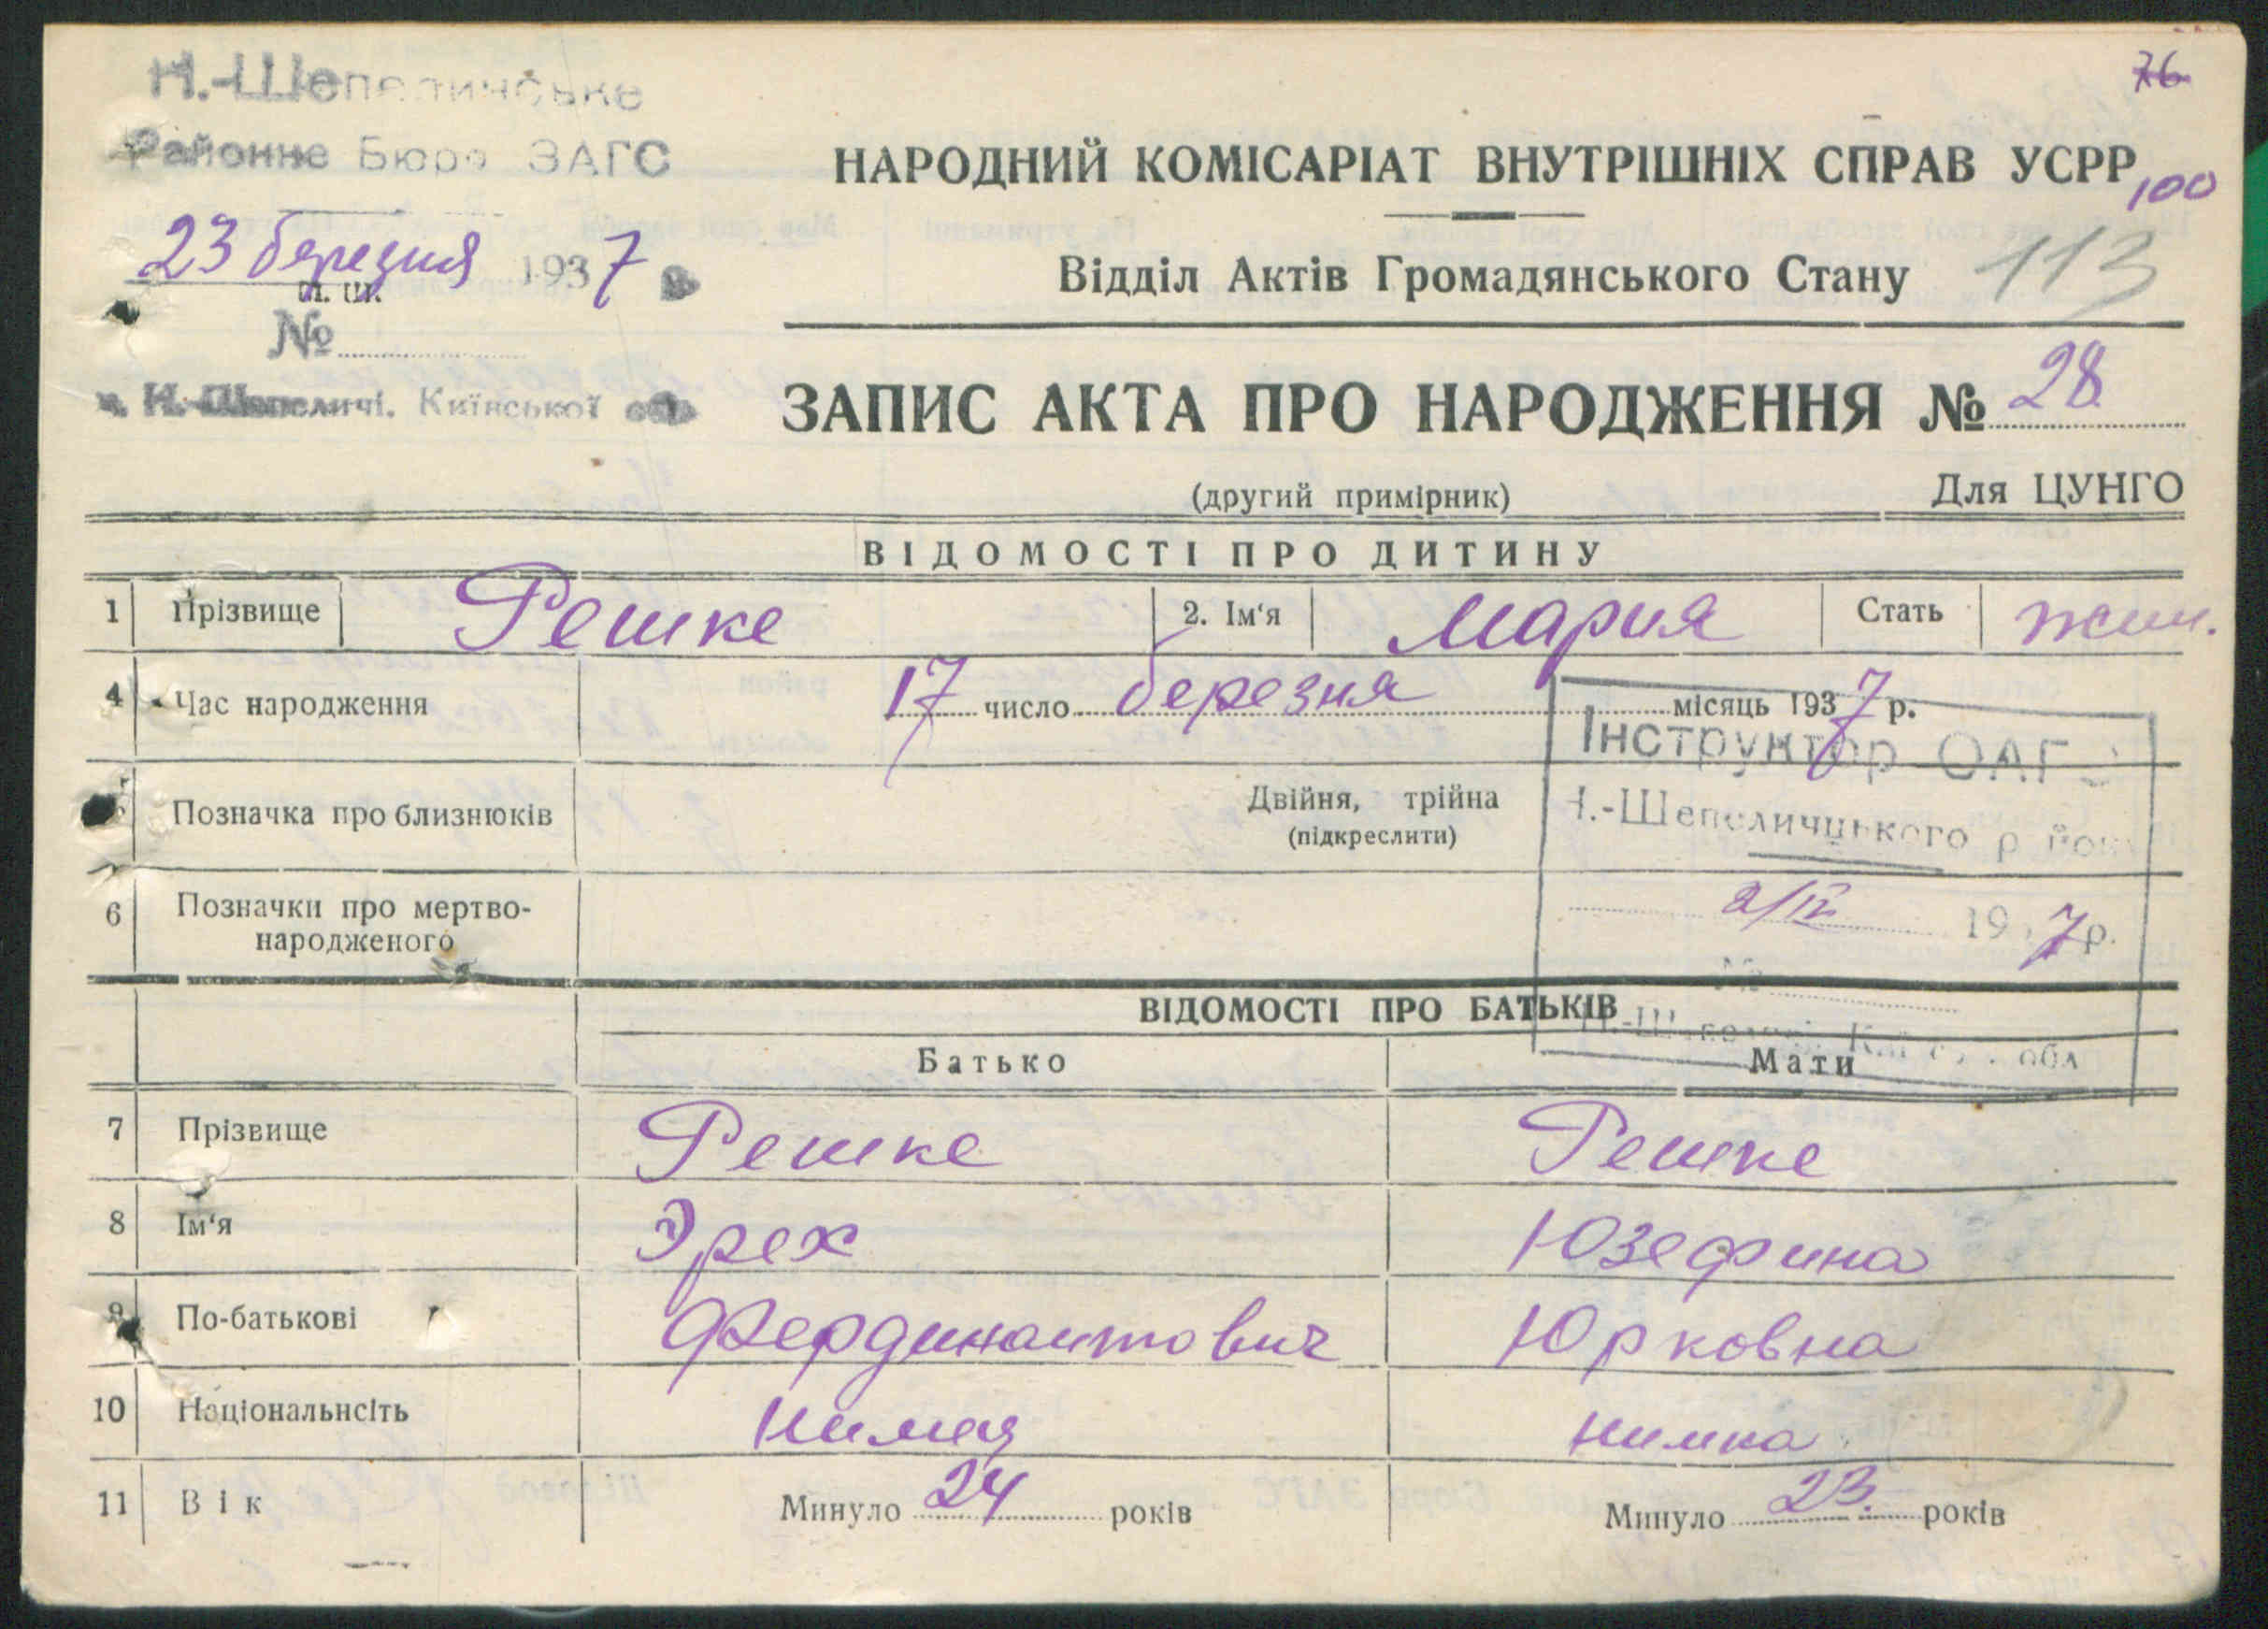 Н.-Шепелинське
76
Районне Бюро ЗАГС
НАРОДНИЙ КОМІСАРІАТ ВНУТРІШНІХ СПРАВ УСРР
100
23 березня 1937
Відділ Актів Громадянського Стану 113
№
Н.-Шепеличі. Київської обл.
ЗАПИС АКТА ПРО НАРОДЖЕННЯ № 28
(другий примірник) Для ЦУНГО
ВІДОМОСТІ ПРО ДИТИНУ
1 Прізвище Решке 2. Ім'я Мария Стать жин.
4 Час народження 17 число березня місяць 1937 р.
Інструктор ОАГС
5 Позначка про близнюків Двійня, трійна
(підкреслити)
Н.-Шепеличцького району
6 Позначки про мертво-
народженого
2/IV 1937 р.
№
ВІДОМОСТІ ПРО БАТЬКІВ
обл
Батько Мати
7 Прізвище Решке Решке
8 Ім'я Эрех Юзефина
9 По-батькові Фердинантович Юрковна
10 Національнсіть Нимец нимка
11 Вік Минуло 24 років Минуло 23. років